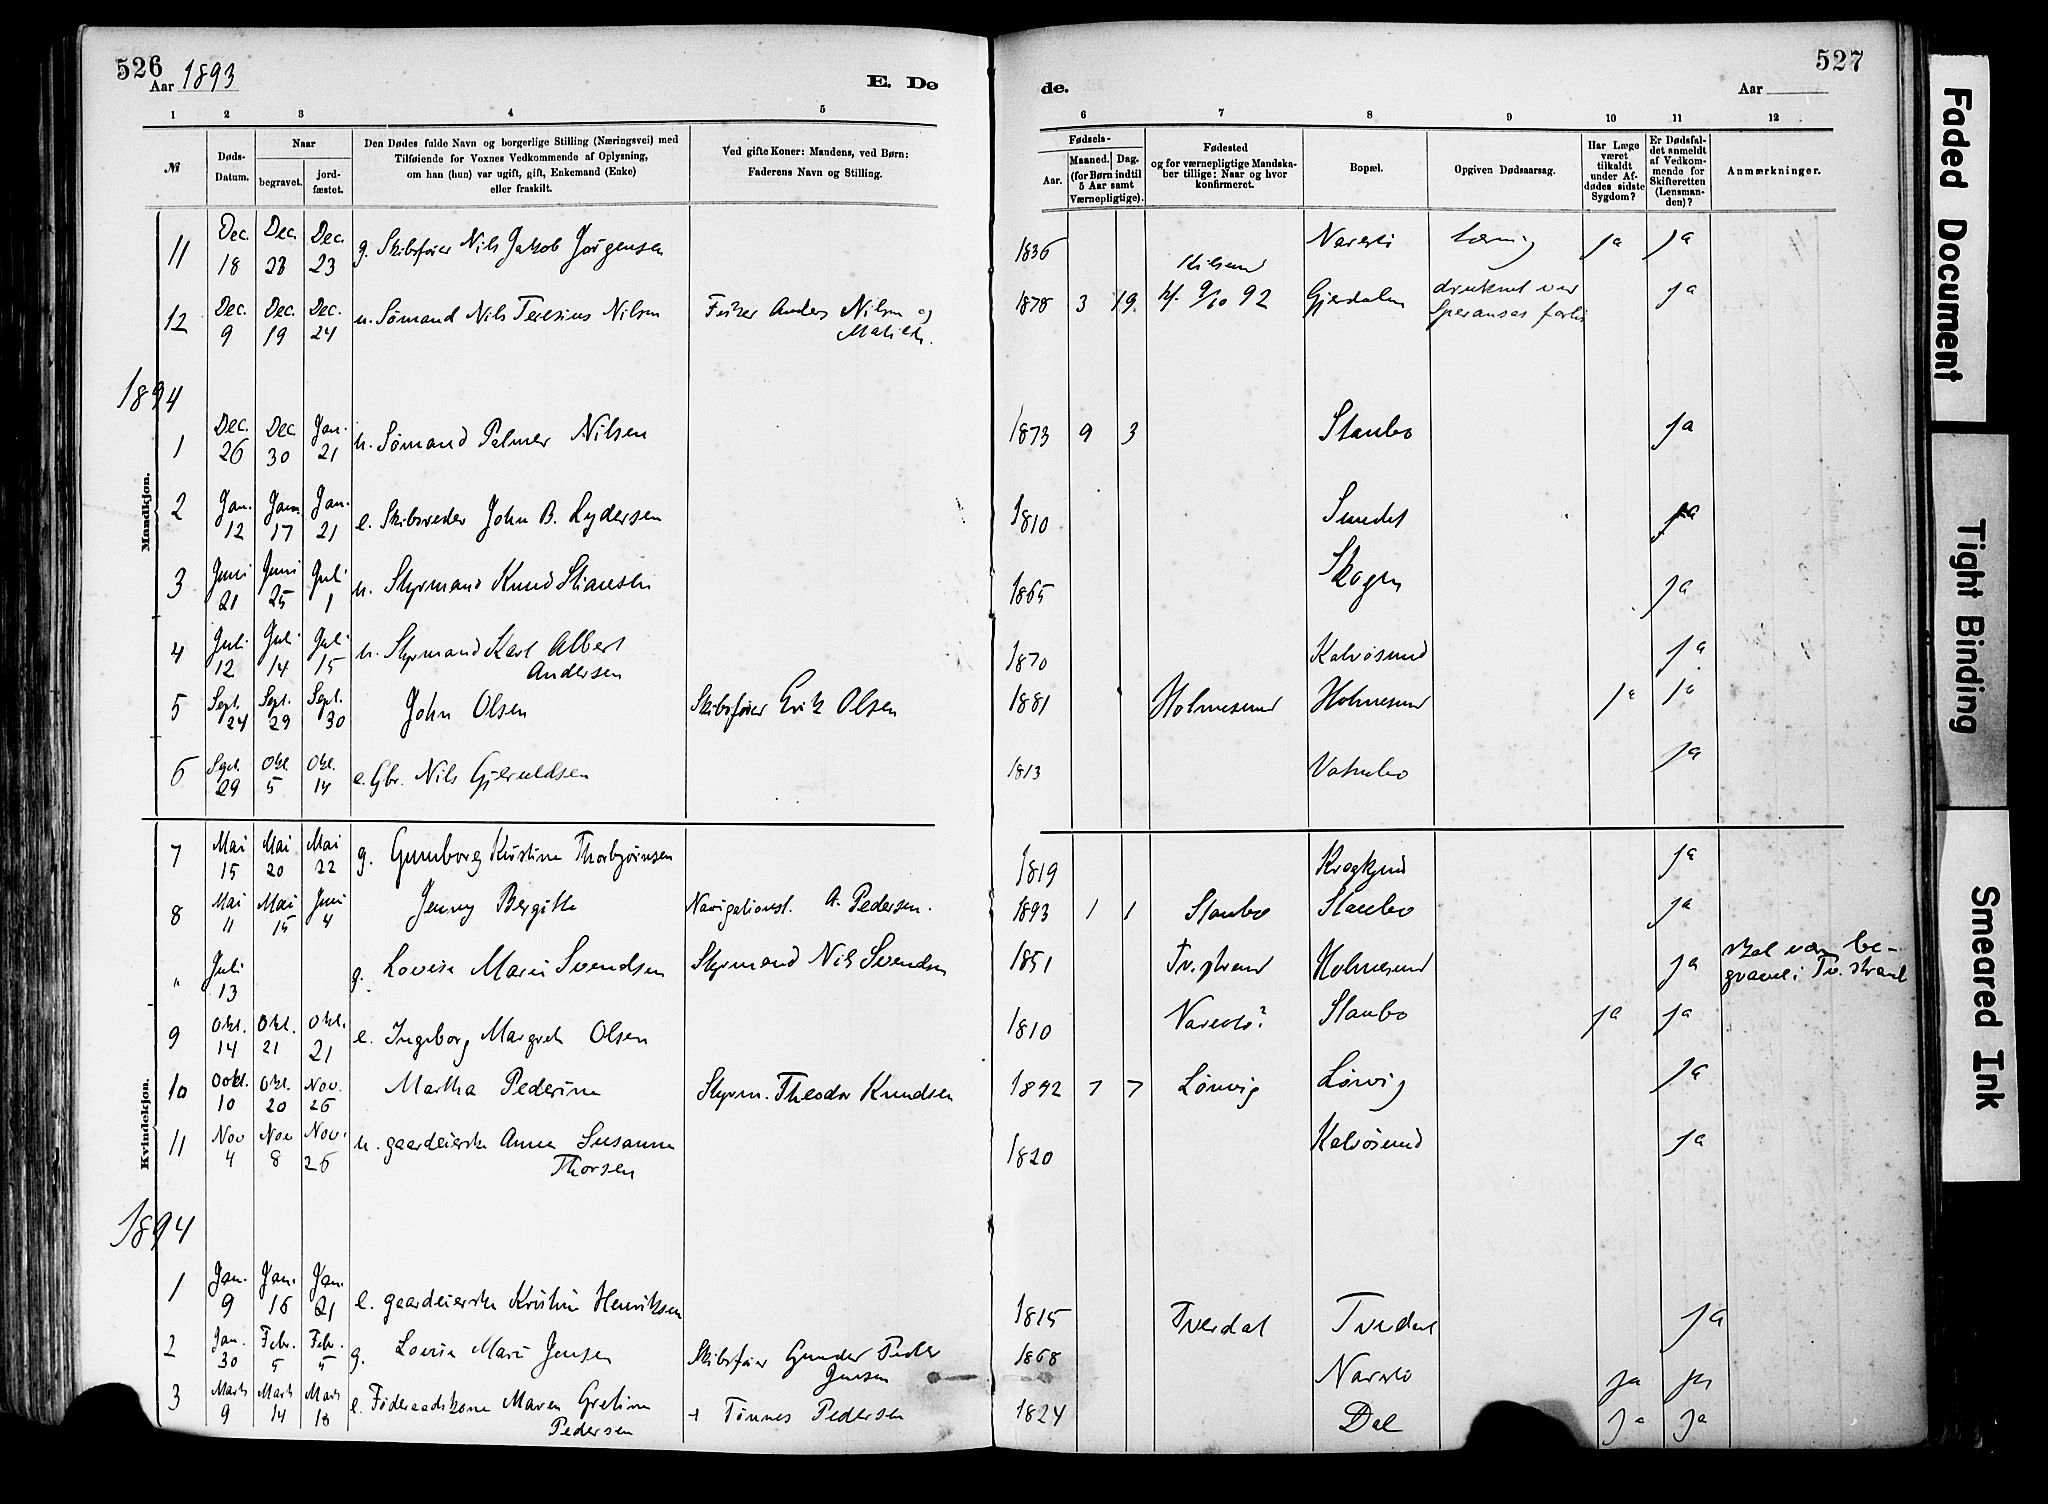 526
Aar 1893
E. Dø
de.
527
Aar
1 2 3 4 5 6 7 8 9 10 11 12
№
Døds-Datum.
Naar
begravet.
jord-fæstet.
Den Dødes fulde Navn og borgerlige Stilling (Næringsvei) med
Tilføiende for Voxnes Vedkommende af Oplysning,
om han (hun) var ugift, gift, Enkemand (Enke)
eller fraskilt.
Ved gifte Koner: Mandens, ved Børn:
Faderens Navn og Stilling.
Fødsels-
Aar.
Maaned. Dag.
(for Børn indtil
5 Aar samt
Værnepligtige).
Fødested
og for værnepligtige Mandska-
ber tillige: Naar og hvor
konfirmeret.
Bopæl.
Opgiven Dødsaarsag.
Har Læge
været
tilkaldt
under Af-
dødes sidste
Sygdom?
Er Dødsfal-
det anmeldt
af Vedkom-
mende for
Skifteretten
(Lensman-
den)?
Anmærkninger.
Mandkjøn.
11 Dec. 18 Dec. 23 Dec. 23 g. Skibsfører Nils Jakob Jørgensen 1836 Narestø tæring ja ja
12 Dec. 9 Dec. 19 Dec. 24 u. Sømand Nils Teresius Nilsen Fisker Anders Nilsen og
1878 3 19 Kilsund
kf. 9/10 92 Gjerdalen druknet ved
Speranses forlis ja
1894
1 Dec. 26 Dec 30 Jan. 21 u. Sømand Palmer Nilsen 1873 9 3 Staubo ja
2 Jan. 12 Jan. 17 Jan. 21 e. Skibsreder John B. Lydersen 1810 Sundet ja
3 Juni 21 Juni 25 Juli 1 u. Styrmand Knud Stiansen 1865 Skogen ja
4 Juli 12 Juli 14 Juli 15 u. Styrmand Karl Albert
Andersen 1870 Kalvøsund ja
5 Sept. 24 Sept. 29 Sept. 30 John Olsen Skibsfører Erik Olsen 1881 Holmesund Holmesund ja ja
6 Sept. 29 Okt. 5 Okt. 14 e. Gbr. Nils Gjeruldsen 1813 Vatnebo ja
Kvindekjøn.
7 Mai 15 Mai 20 Mai 22 g. Gunborg Kristine Thorbjørnsen 1819 ja
8 Mai 11 Mai 15 Juni 4 Jenny Bergitte Navigationst. A. Pedersen. 1893 1 1 Staubo Staubo ja
" Juli 13 g. Lovise Marie Svendsen Styrmand Nils Svendsen 1851 Tv.strand Holmesund ja skal være be-
gravet i Tv.strand
9 Okt. 14 Okt. 21 Okt. 21 e. Ingeborg Margrete Olsen 1810 Narestø? Staubo ja ja
10 Ookt. 10 Okt. 20 Nov. 26 Martha Pederine Styrm. Theodor Knudsen 1892 7 7 Lønvig Lønvig ja
11 Nov 4 Nov 8 Nov. 26 u. gaardeierske Anne Susanne
Thorsen 1820 Kalvøsund ja
1894
1 Jan. 9 Jan. 16 Jan. 21 e. gaardeierske Kristine Henriksen 1815 Tverdal Tverdal ja
2 Jan. 30 Febr. 5 Febr. 5 g. Lovise Marie Jensen Skibsfører Gunder Peder
Jensen 1868 Narestø ja ja
3 Marts 9 Marts 14 Marts 18 e. Føderaadskone Maren Gretine
Pedersen + Tønnes Pedersen 1824 Dal ja ja
Faded Document
Tight Binding
Smeared Ink